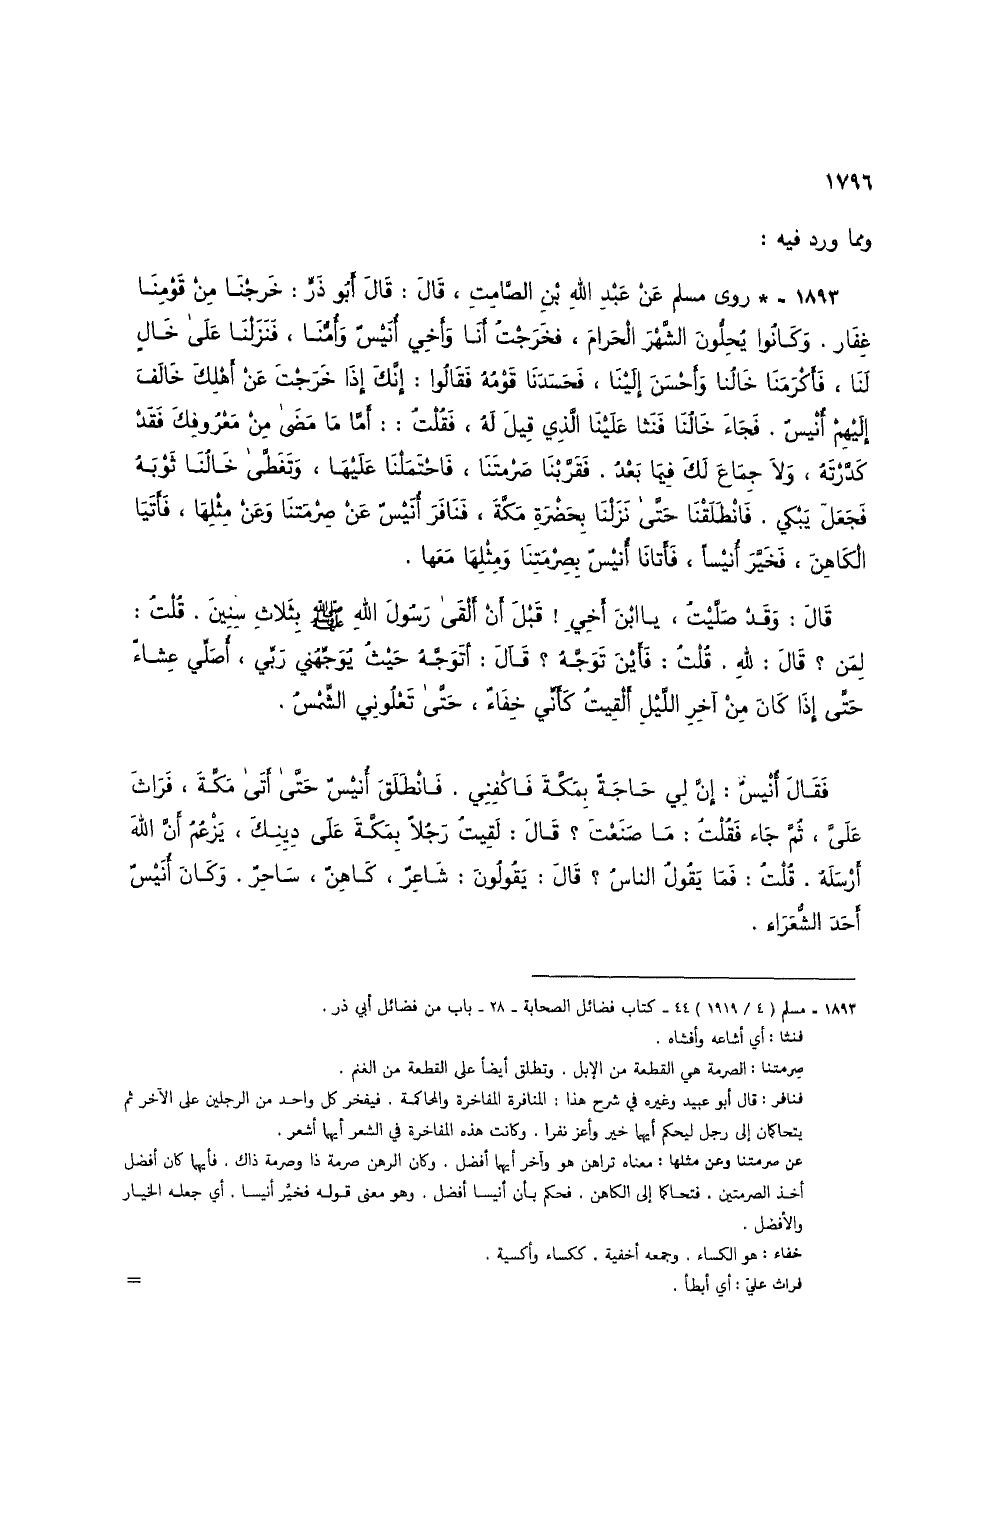 ١٧٩٦
ومما ورد فيه :
١٨٩٣ - * روى مسلم عَنْ عَبْدِ اللهِ بْنِ الصَّامِتِ ، قَالَ : قَالَ أَبُو ذَرٍّ : خَرجْنَا مِنْ قَوْمِنَا
غِفَار . وَكَانُوا يُحِلُّونَ الشَّهْرَ الْحَرامَ ، فخَرَجْتُ أنَا وَأخِي أُنَيْسٌ وَأُمُّنَا ، فَنَزَلْنَا عَلَىٰ خَالٍ
لَنَا ، فَأَكْرَمَنَا خَالُنا وَأَحْسَنَ إِلَيْنَا ، فَحَسَدَنَا قَوْمُهُ فَقَالُوا : إِنَّكَ إِذَا خَرَجْتَ عَنْ أَهْلِكَ خَالَفَ
إِلَيْهِمْ أُنَيسٌ . فَجَاءَ خَالُنَا فَنَثا عَلَيْنَا الَّذِي قِيلَ لَهُ ، فَقُلْتُ : : أَمَّا مَا مَضَىٰ مِنْ مَعْرُوفِكَ فَقَدْ
كَدَّرْتَهُ ، وَلاَ جِمَاعَ لَكَ فِيمَا بَعْدُ . فَقَرَّبْنَا صَرْمتَنَا ، فَاحْتَمَلْنَا عَلَيْهَا ، وَتَغَطَّىٰ خَالُنَا ثَوْبَهُ
فَجَعَلَ يَبْكي . فَانْطَلَقْنَا حَتَّىٰ نَزَلْنَا بِحَضْرَةِ مَكَّةَ ، فَنَافَرَ أُنَيْسٌ عَنْ صِرْمَتنَا وَعَنْ مِثْلِهَا ، فَأَتَيَا
الْكَاهِنَ ، فَخَيَّرَ أُنيْساً ، فَأَتانَا أُنيْسٌ بِصِرْمَتِنَا وَمِثْلِهَا مَعَها .
قَالَ : وَقَدْ صَلَّيْتُ ، يَاابْنَ أَخِي ! قَبْلَ أَنْ أَلْقَىٰ رَسُولَ اللهِ ﷺ بِثَلاثِ سِنِينَ . قُلْتُ :
لِمَن ؟ قَالَ : للهِ . قُلْتُ : فَأَيْنَ تَوَجَّهُ ؟ قَالَ : أتَوَجَّهُ حَيْثُ يُوَجِّهُنِي رَبِّي ، أُصَلِّي عِشاءً
حَتَّى إِذَا كَانَ مِنْ آخِرِ اللَّيْلِ أَلْقِيتُ كَأَنِّي خِفَاءٌ ، حَتَّىٰ تَعْلُونِي الشَّمْسُ .
فَقَالَ أُنَيْسٌ : إِنَّ لِي حَاجَةً بِمَكَّةَ فَاكْفِنِي . فَانْطَلَقَ أُنيْسٌ حَتَّىٰ أَتَىٰ مَكَّةَ ، فَرَاثَ
عَلَيَّ ، ثُمَّ جَاء فَقُلْتُ : مَا صَنَعْتَ ؟ قَالَ : لَقِيتُ رَجُلاً بِمَكَّةَ عَلَى دِينِكَ ، يَزْعُمُ أَنَّ اللهَ
أَرْسَلَهُ . قُلْتُ : فَمَا يَقُولُ الناسُ ؟ قَالَ : يَقُولُونَ : شَاعِرٌ ، كَاهِنٌ ، سَاحِرٌ . وَكَانَ أُنَيْسٌ
أَحَدَ الشُّعَرَاءِ .
١٨٩٣ - مسلم ( ٤ / ١٩١٩ ) ٤٤ - كتاب فضائل الصحابة - ٢٨ - باب من فضائل أبي ذر .
فنثا : أي أشاعه وأفشاه .
صِرمتنا : الصرمة هي القطعة من الإبل . وتطلق أيضاً على القطعة من الغنم .
فنافر : قال أبو عبيد وغيره في شرح هذا : المنافرة المفاخرة والمحاكمة . فيفخر كل واحد من الرجلين على الآخر ثم
يتحاكمان إلى رجل ليحكم أيهما خير وأعز نفرا . وكانت هذه المفاخرة في الشعر أيهما أشعر .
عن صرمتنا وعن مثلها : معناه تراهن هو وآخر أيهما أفضل . وكان الرهن صرمة ذا وصرمة ذاك . فأيهما كان أفضل
أخذ الصرمتين . فتحاكما إلى الكاهن . فحكم بأن أنيسا أفضل . وهو معنى قوله فخيّر أنيسا . أي جعله الخيار
والأفضل .
خفاء : هو الكساء . وجمعه أخفية . ككساء وأكسية .
فراث عليّ : أي أبطأ .
=